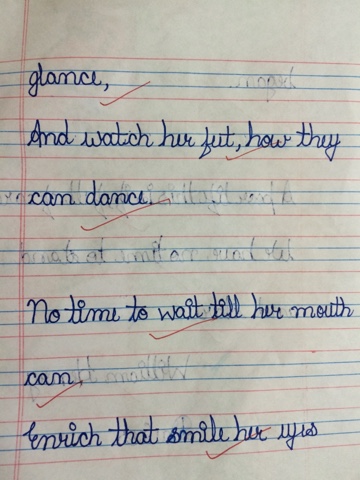 glance,
And watch her feet, how they
can dance.
No time to wait till her mouth
can,
Enrich that smile her eyes